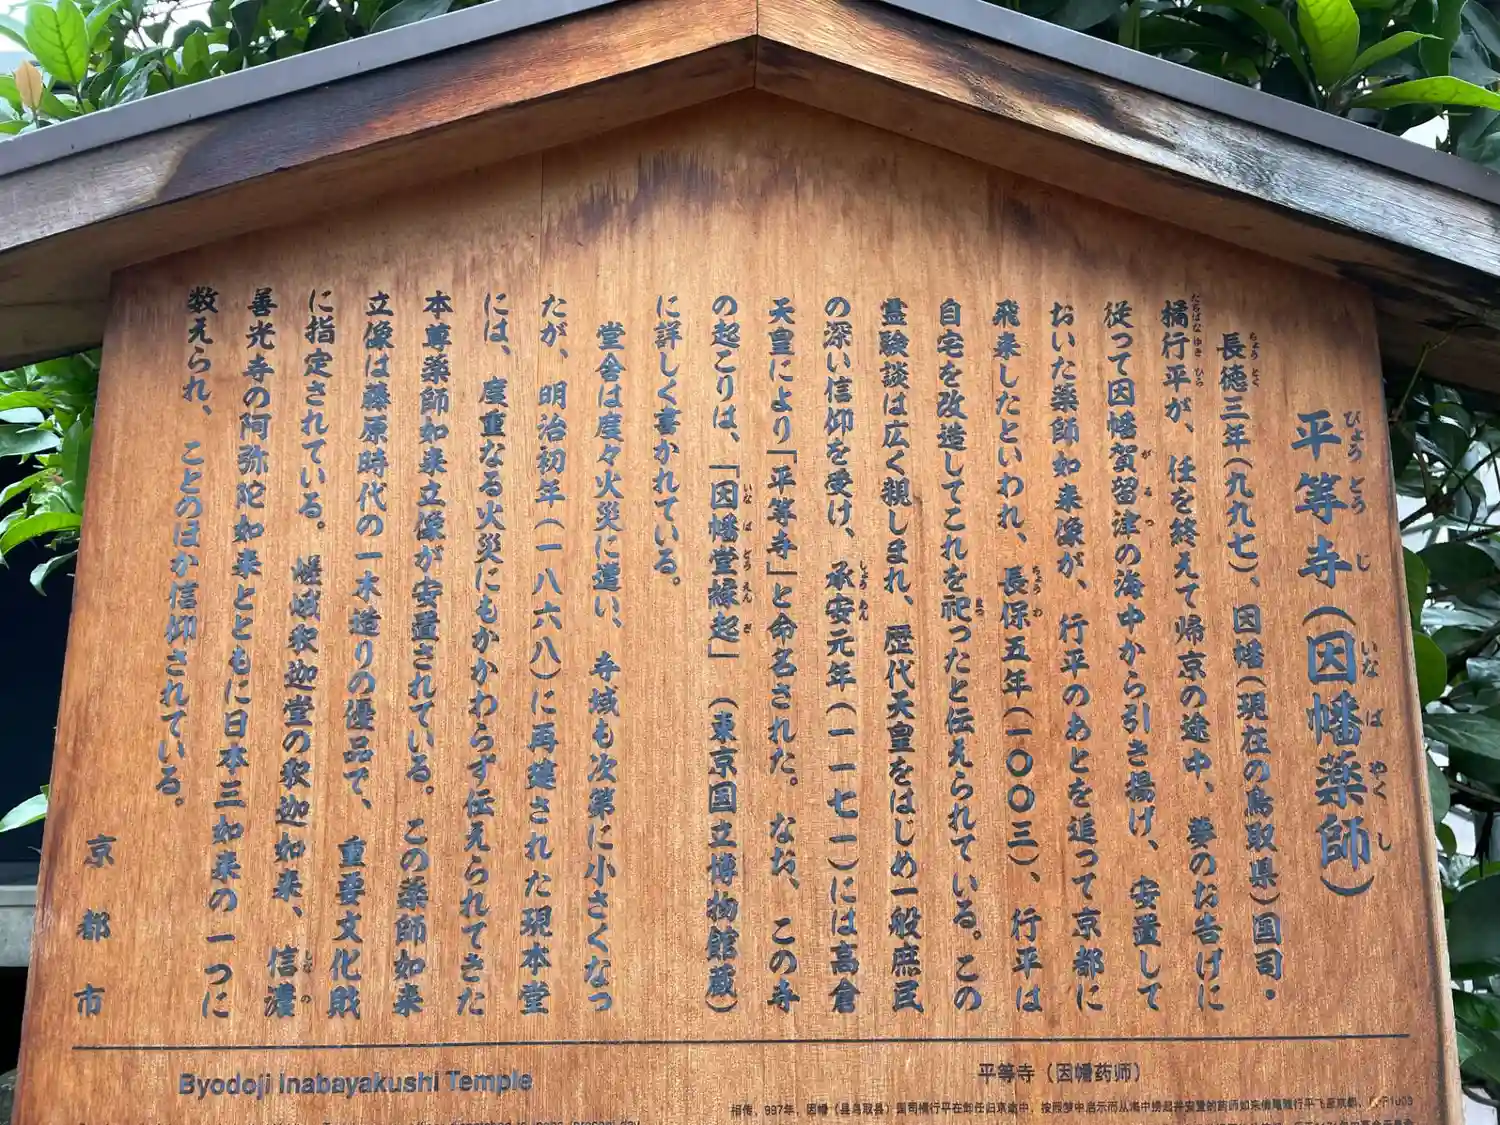 平等寺(因幡薬師)
びょうどうじ いなばやくし
長徳三年(九九七)、因幡(現在の鳥取県)国司・
ちょうとく
橘行平が、任を終えて帰京の途中、夢のお告げに
たちばなゆきひら
従って因幡賀留津の海中から引き揚げ、安置して
がるつ
おいた薬師如来像が、行平のあとを追って京都に
飛来したといわれ、長保五年(一〇〇三)、行平は
ちょうわ
自宅を改造してこれを祀ったと伝えられている。この
まつ
霊験談は広く親しまれ、歴代天皇をはじめ一般庶民
の深い信仰を受け、承安元年(一一七一)には高倉
しょうあん
天皇により「平等寺」と命名された。なお、この寺
の起こりは、「因幡堂縁起」(東京国立博物館蔵)
いなばどうえんぎ
に詳しく書かれている。
堂舎は度々火災に遭い、寺域も次第に小さくなっ
たが、明治初年(一八六八)に再建された現本堂
には、度重なる火災にもかかわらず伝えられてきた
本尊薬師如来立像が安置されている。この薬師如来
立像は藤原時代の一木造りの優品で、重要文化財
に指定されている。嵯峨釈迦堂の釈迦如来、信濃
しなの
善光寺の阿弥陀如来とともに日本三如来の一つに
数えられ、ことのほか信仰されている。
京都市
Byodoji Inabayakushi Temple
平等寺(因幡药师)
相传,997年,因幡(县鸟取县)国司橘行平在卸任归京途中,按照梦中启示而从海中捞起并安置的药师如来像尾随行平飞至京都,